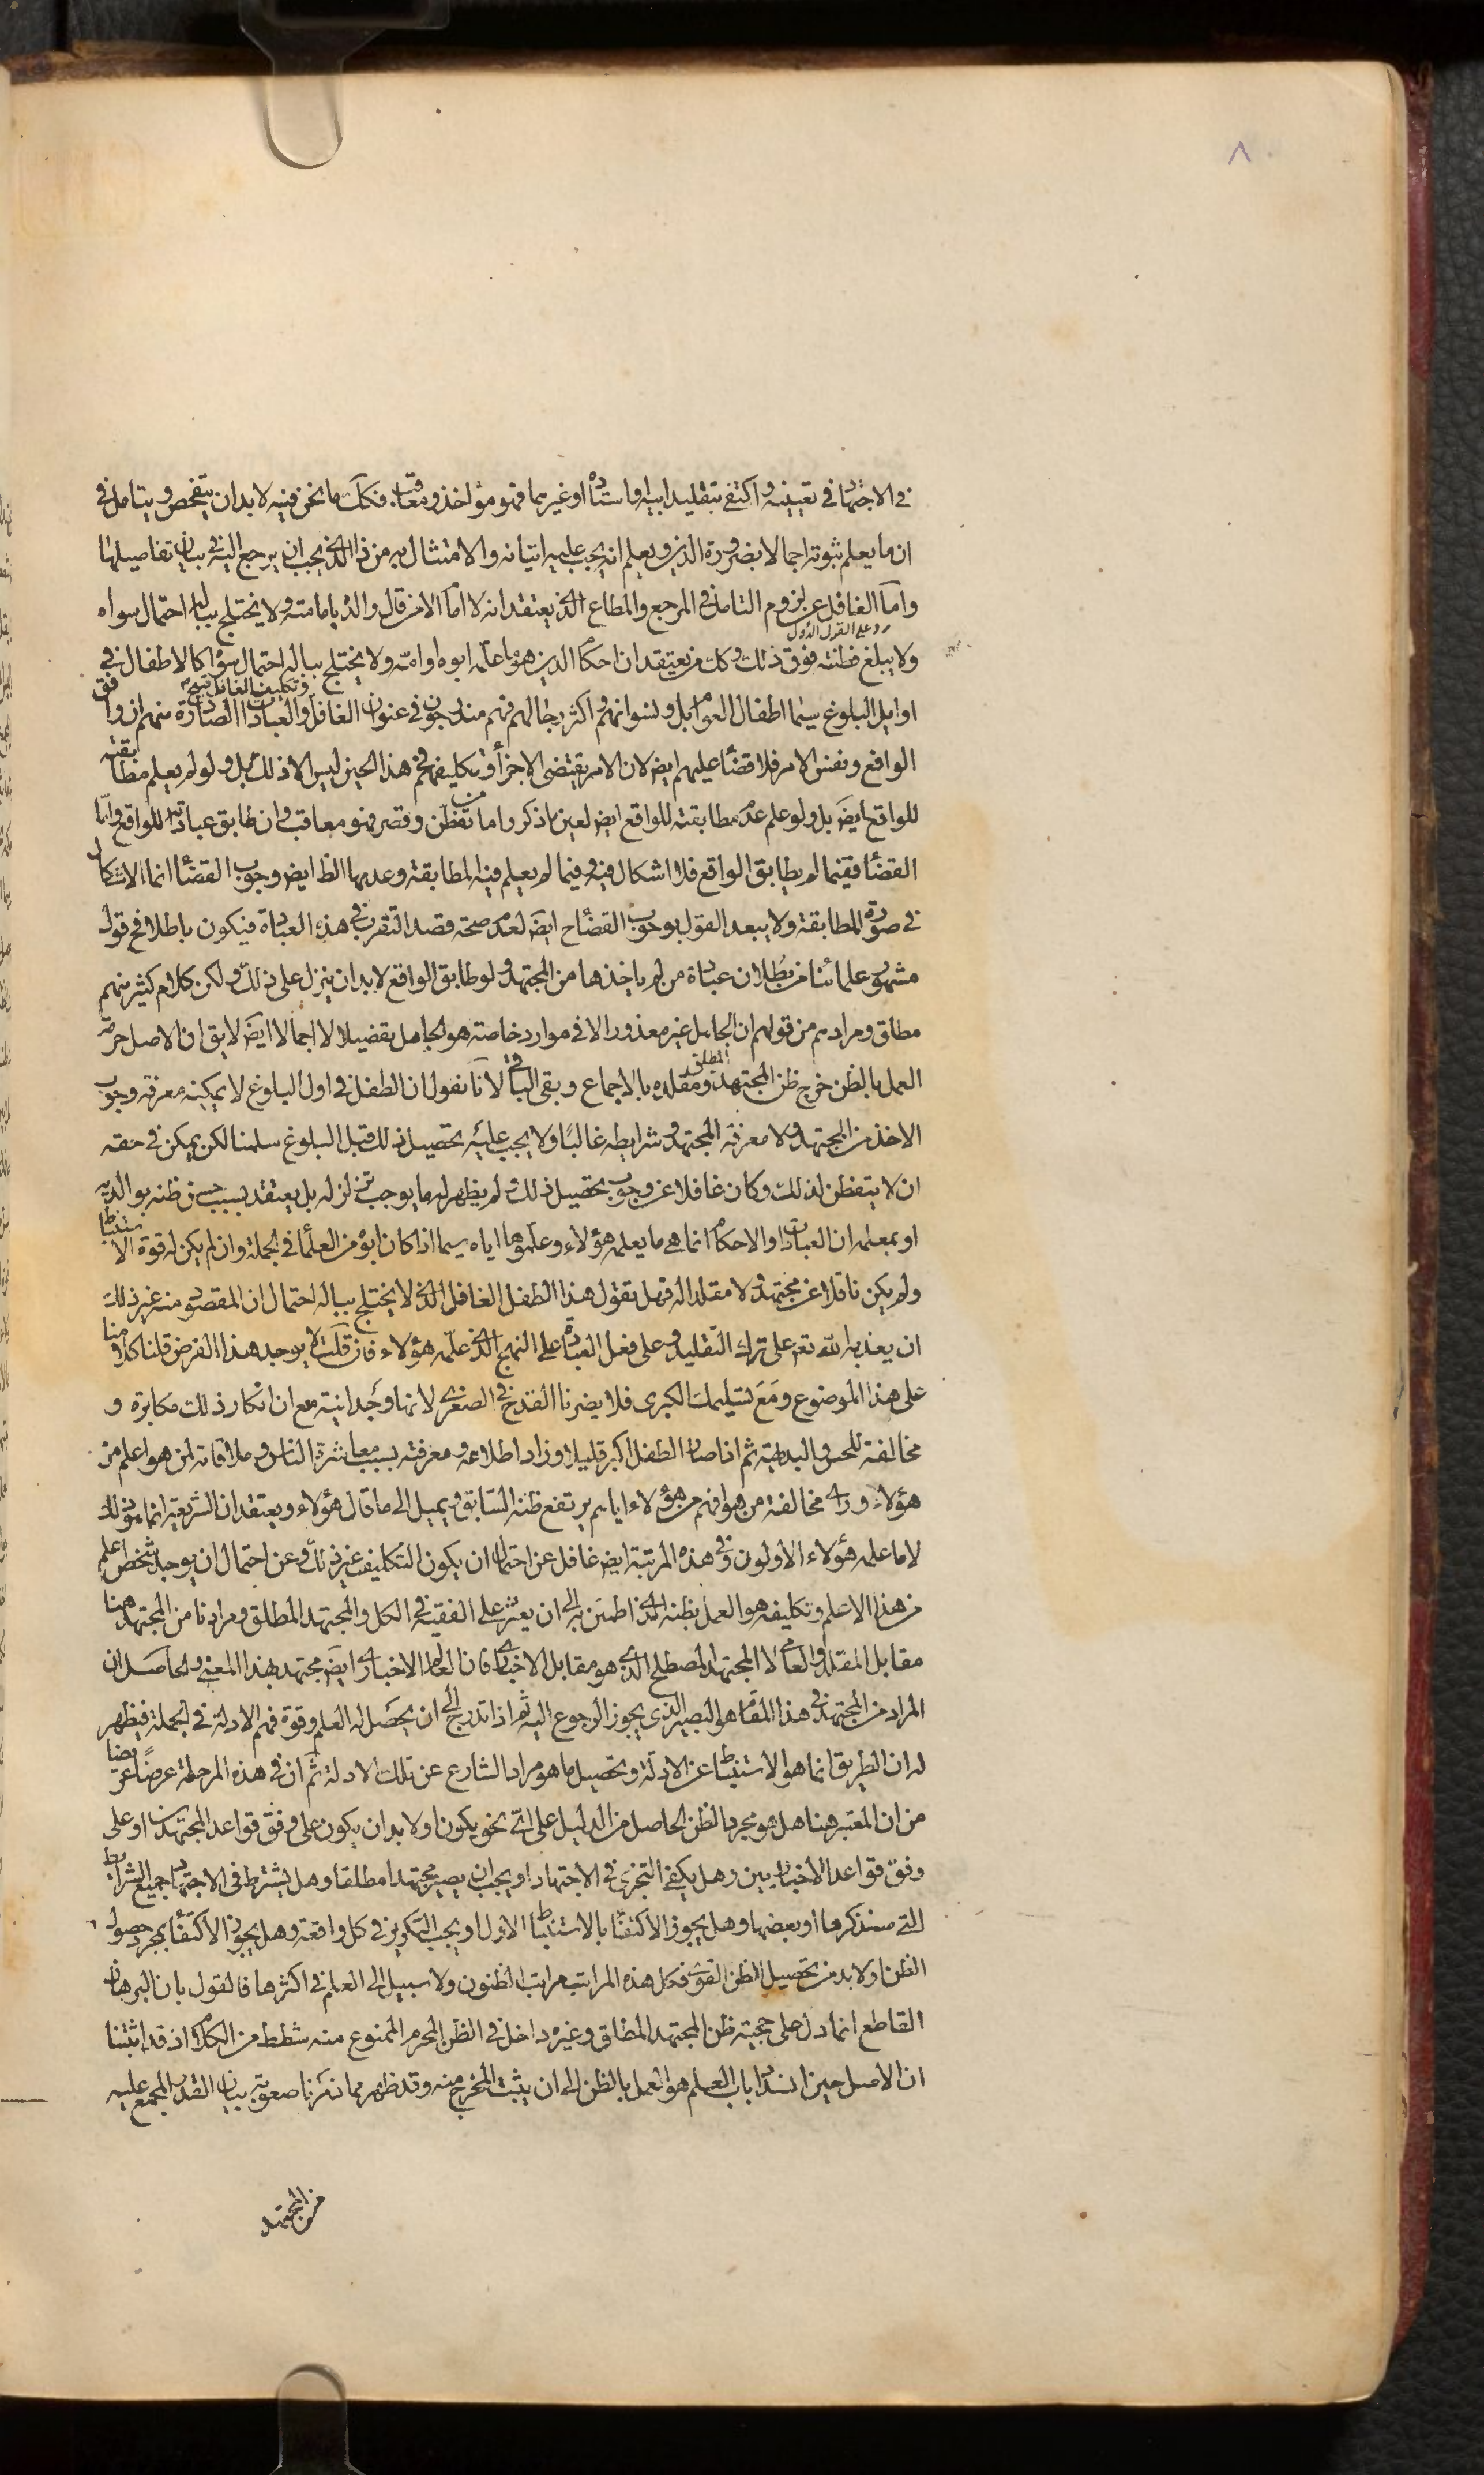 ٨
في الاجتهاد في تعيينه واكتفى بتقليد ابيه او استاده او غيرهما فهو مؤاخذ ومعاقب فكك ما نحن فيه لا بد ان يتفحص ويتامل في
ان ما يعلم ثبوته اجمالا بضرورة الدين ويعلم انه يجب عليه اتيانه والامتثال به من ذا الذي يجب ان يرجع اليه في بيان تفاصيلها
واما الغافل عن لزوم التامل في المرجع والمطاع الذي يعتقد انه لا امام الا من قال والده بامامته ولا يختلج بباله احتمال سواه
رد على القول الاول
ولا يبلغ فطنته فوق ذلك وكك من يعتقد ان احكام الدين هو ما علمه ابوه او امه ولا يختلج بباله احتمال سواه كالاطفال في
وتكليف الغافل قبيح
اوايل البلوغ سيما اطفال العوام بل ونسوانهم واكثر رجالهم فهم مندرجون في عنوان الغافل والعبادات الصادرة منهم ان وافق
الواقع ونفس الامر فلا قضاء عليهم ايض لان الامر يقتضي الاجزاء وتكليفهم في هذا الحين ليس الا ذلك بل ولو لم يعلم مطابقته
للواقع ايض بل ولو علم عدم مطابقته للواقع ايض لعين ما ذكر واما من تفطن وقصر فهو معاقب وان طابق عبادته للواقع واما
القضاء ففيما لم يطابق الواقع فلا اشكال فيه وفيما لم يعلم فيه المطابقة وعدمها الظ ايض وجوب القضاء انما الاشكال
في صورة المطابقة ولا يبعد القول بوجوب القضاء ح ايض لعدم صحة قصد التقرب في هذه العبادة فيكون باطلا فح قول
مشهور علمائنا من بطلان عبادة من لم ياخذها من المجتهد ولو طابق الواقع لا بد ان ينزل على ذلك ولكن كلام كثير منهم
مطلق ومرادهم من قولهم ان الجاهل غير معذور الا في موارد خاصة هو الجاهل بقضيلا لا اجمالا ايض لا يق ان الاصل حرمة
العمل بالظن خرج ظن المجتهد المطلق ومقلده بالاجماع وبقي الباقي لانا نقول ان الطفل في اول البلوغ لا يمكنه معرفة وجوب
الاخذ من المجتهد ولا معرفة المجتهد وشرايطه غالبا ولا يجب عليه تحصيل ذلك قبل البلوغ سلمنا لكن يمكن في حقه
ان لا يتفطن لذلك وكان غافلا عن وجوب تحصيل ذلك ولم يظهر له ما يوجب تزلزله بل يعتقد بسبب حسن ظنه بوالديه
او بمعلمه ان العبادات او الاحكام انما هي ما يعلمه هؤلاء وعلموها اياه سيما اذا كان ابوه من العلماء في الجملة وان لم يكن له قوة الاستنباط
ولم يكن ناقلا عن مجتهد ولا مقلدا له فهل تقول هذا الطفل الغافل الذي لا يختلج بباله احتمال ان المقصود منه غير ذلك
ان يعذبه الله تعم على ترك التقليد وعلى فعل العبادة على النهج الذي علمه هؤلاء فان قلت لا يوجد هذا الفرض قلنا كلامنا
على هذا الموضوع ومع تسليمك الكبرى فلا يضرنا القدح في الصغرى لانها وجدانية مع ان انكار ذلك مكابرة و
مخالفة للحس والبديهة ثم اذا صار الطفل اكبر قليلا وزاد اطلاعه ومعرفته بسبب معاشرة الناس وملاقاته لمن هو اعلم من
هؤلاء وراى مخالفة من هو افهم من هؤلاء اياهم يرتفع ظنه السابق ويميل الى ما قال هؤلاء ويعتقد ان الشريعة انما هو ذلك
لا ما علمه هؤلاء الاولون وفي هذه المرتبة ايض غافل عن احتمال ان يكون التكليف غير ذلك وعن احتمال ان يوجد شخص اعلم
من هذا الاعلم وتكليفه هو العمل بظنه الذي اطمئن به الى ان يعثر على الفقيه في الكل والمجتهد المطلق ومرادنا من المجتهد هنا
مقابل المقلد والعامي لا المجتهد المصطلح الذي هو مقابل الاخباري فان العالم الاخباري ايض مجتهد بهذا المعنى والحاصل ان
المراد من المجتهد في هذا المقام هو البصير الذي يجوز الرجوع اليه ثم اذا تدرج الى ان يحصل له العلم وقوة فهم الادلة في الجملة فيظهر
له ان الطريق انما هو الاستنباط عن الادلة وتحصيل ما هو مراد الشارع عن تلك الادلة ثم ان في هذه المرحلة عرضا عريضا
من ان المعتبر هنا هل هو مجرد الظن الحاصل من الدليل على اي نحو يكون او لا بد ان يكون على وفق قواعد المجتهدين او على
وفق قواعد الاخباريين وهل يكفي التجزي في الاجتهاد او يجب ان يصير مجتهدا مطلقا وهل يشترط في الاجتهاد جميع الشرايط
التي سنذكرها او بعضها وهل يجوز الاكتفاء بالاستنباط الاول او يجب التكرير في كل واقعة وهل يجوز الاكتفاء بمجرد حصول
الظن او لا بد من تحصيل الظن القوي فكل هذه المراتب مراتب الظنون ولا سبيل الى العلم في اكثرها فالقول بان البرهان
القاطع انما دل على حجية ظن المجتهد المطلق وغيره داخل في الظن المحرم الممنوع منه شطط من الكلام اذ قد اثبتنا
ان الاصل حين انسداد باب العلم هو العمل بالظن الى ان يثبت المخرج منه وقد ظهر مما ذكرنا صعوبة بيان القدر المجمع عليه
من المجتهد